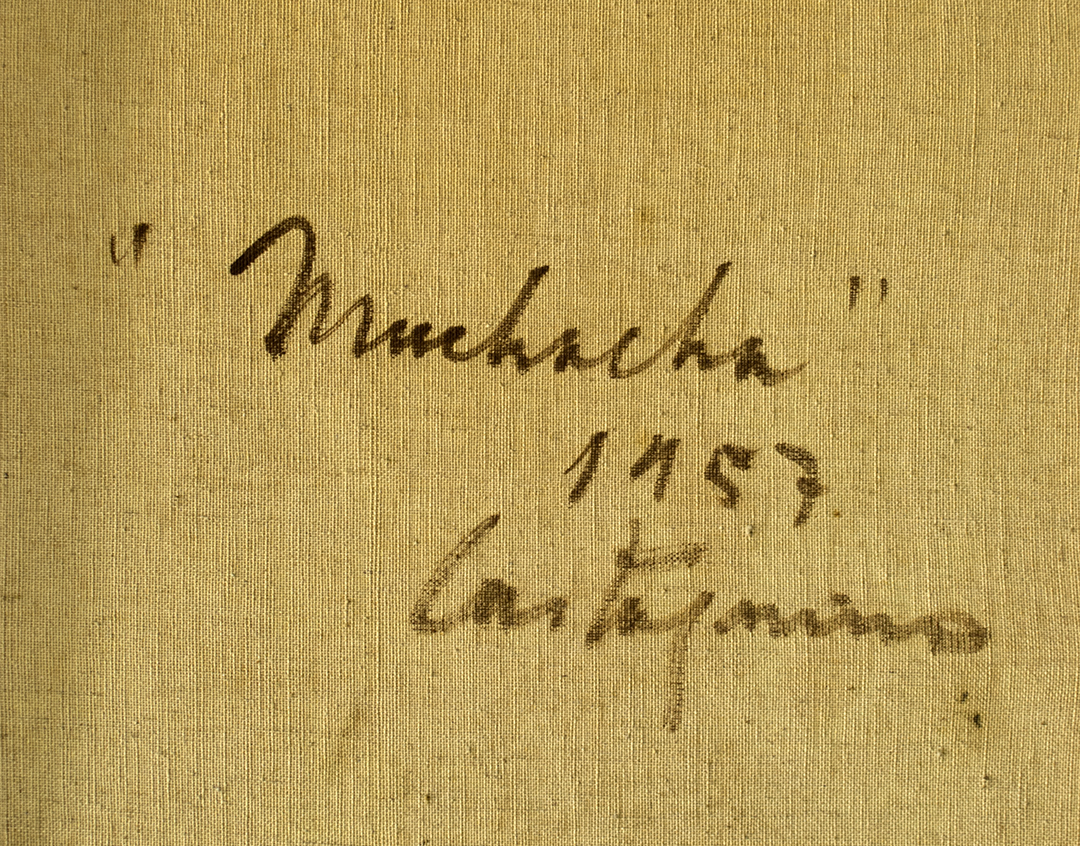 "Muchacha"
1957
Castagnino